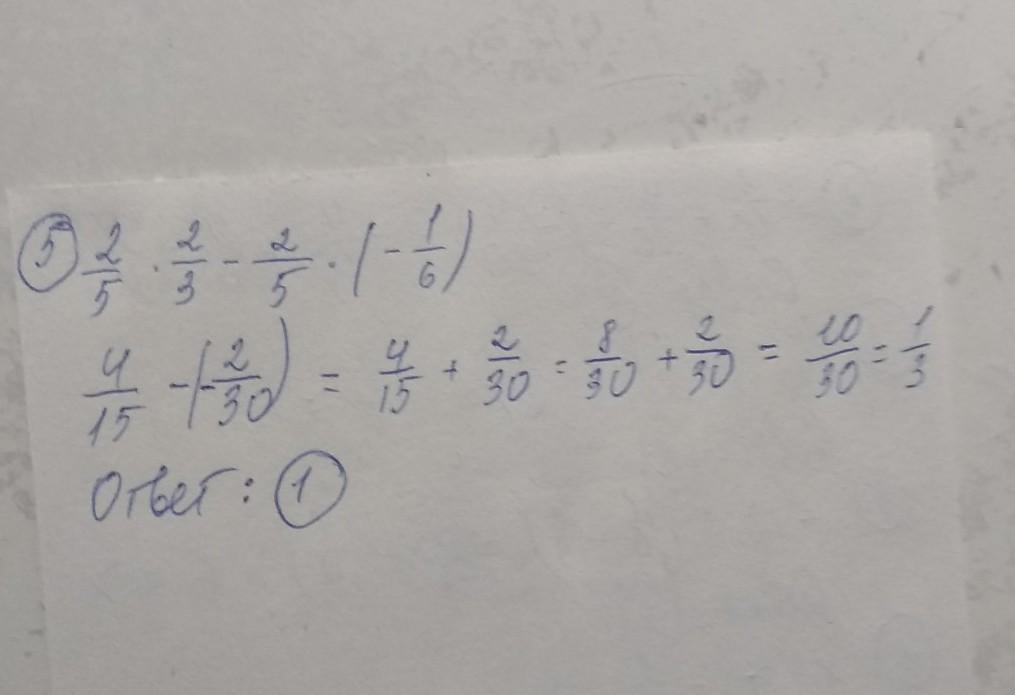 ⑤ 2/5 · 2/3 - 2/5 · (-1/6)
4/15 - (-2/30) = 4/15 + 2/30 = 8/30 + 2/30 = 10/30 = 1/3
Ответ: ①